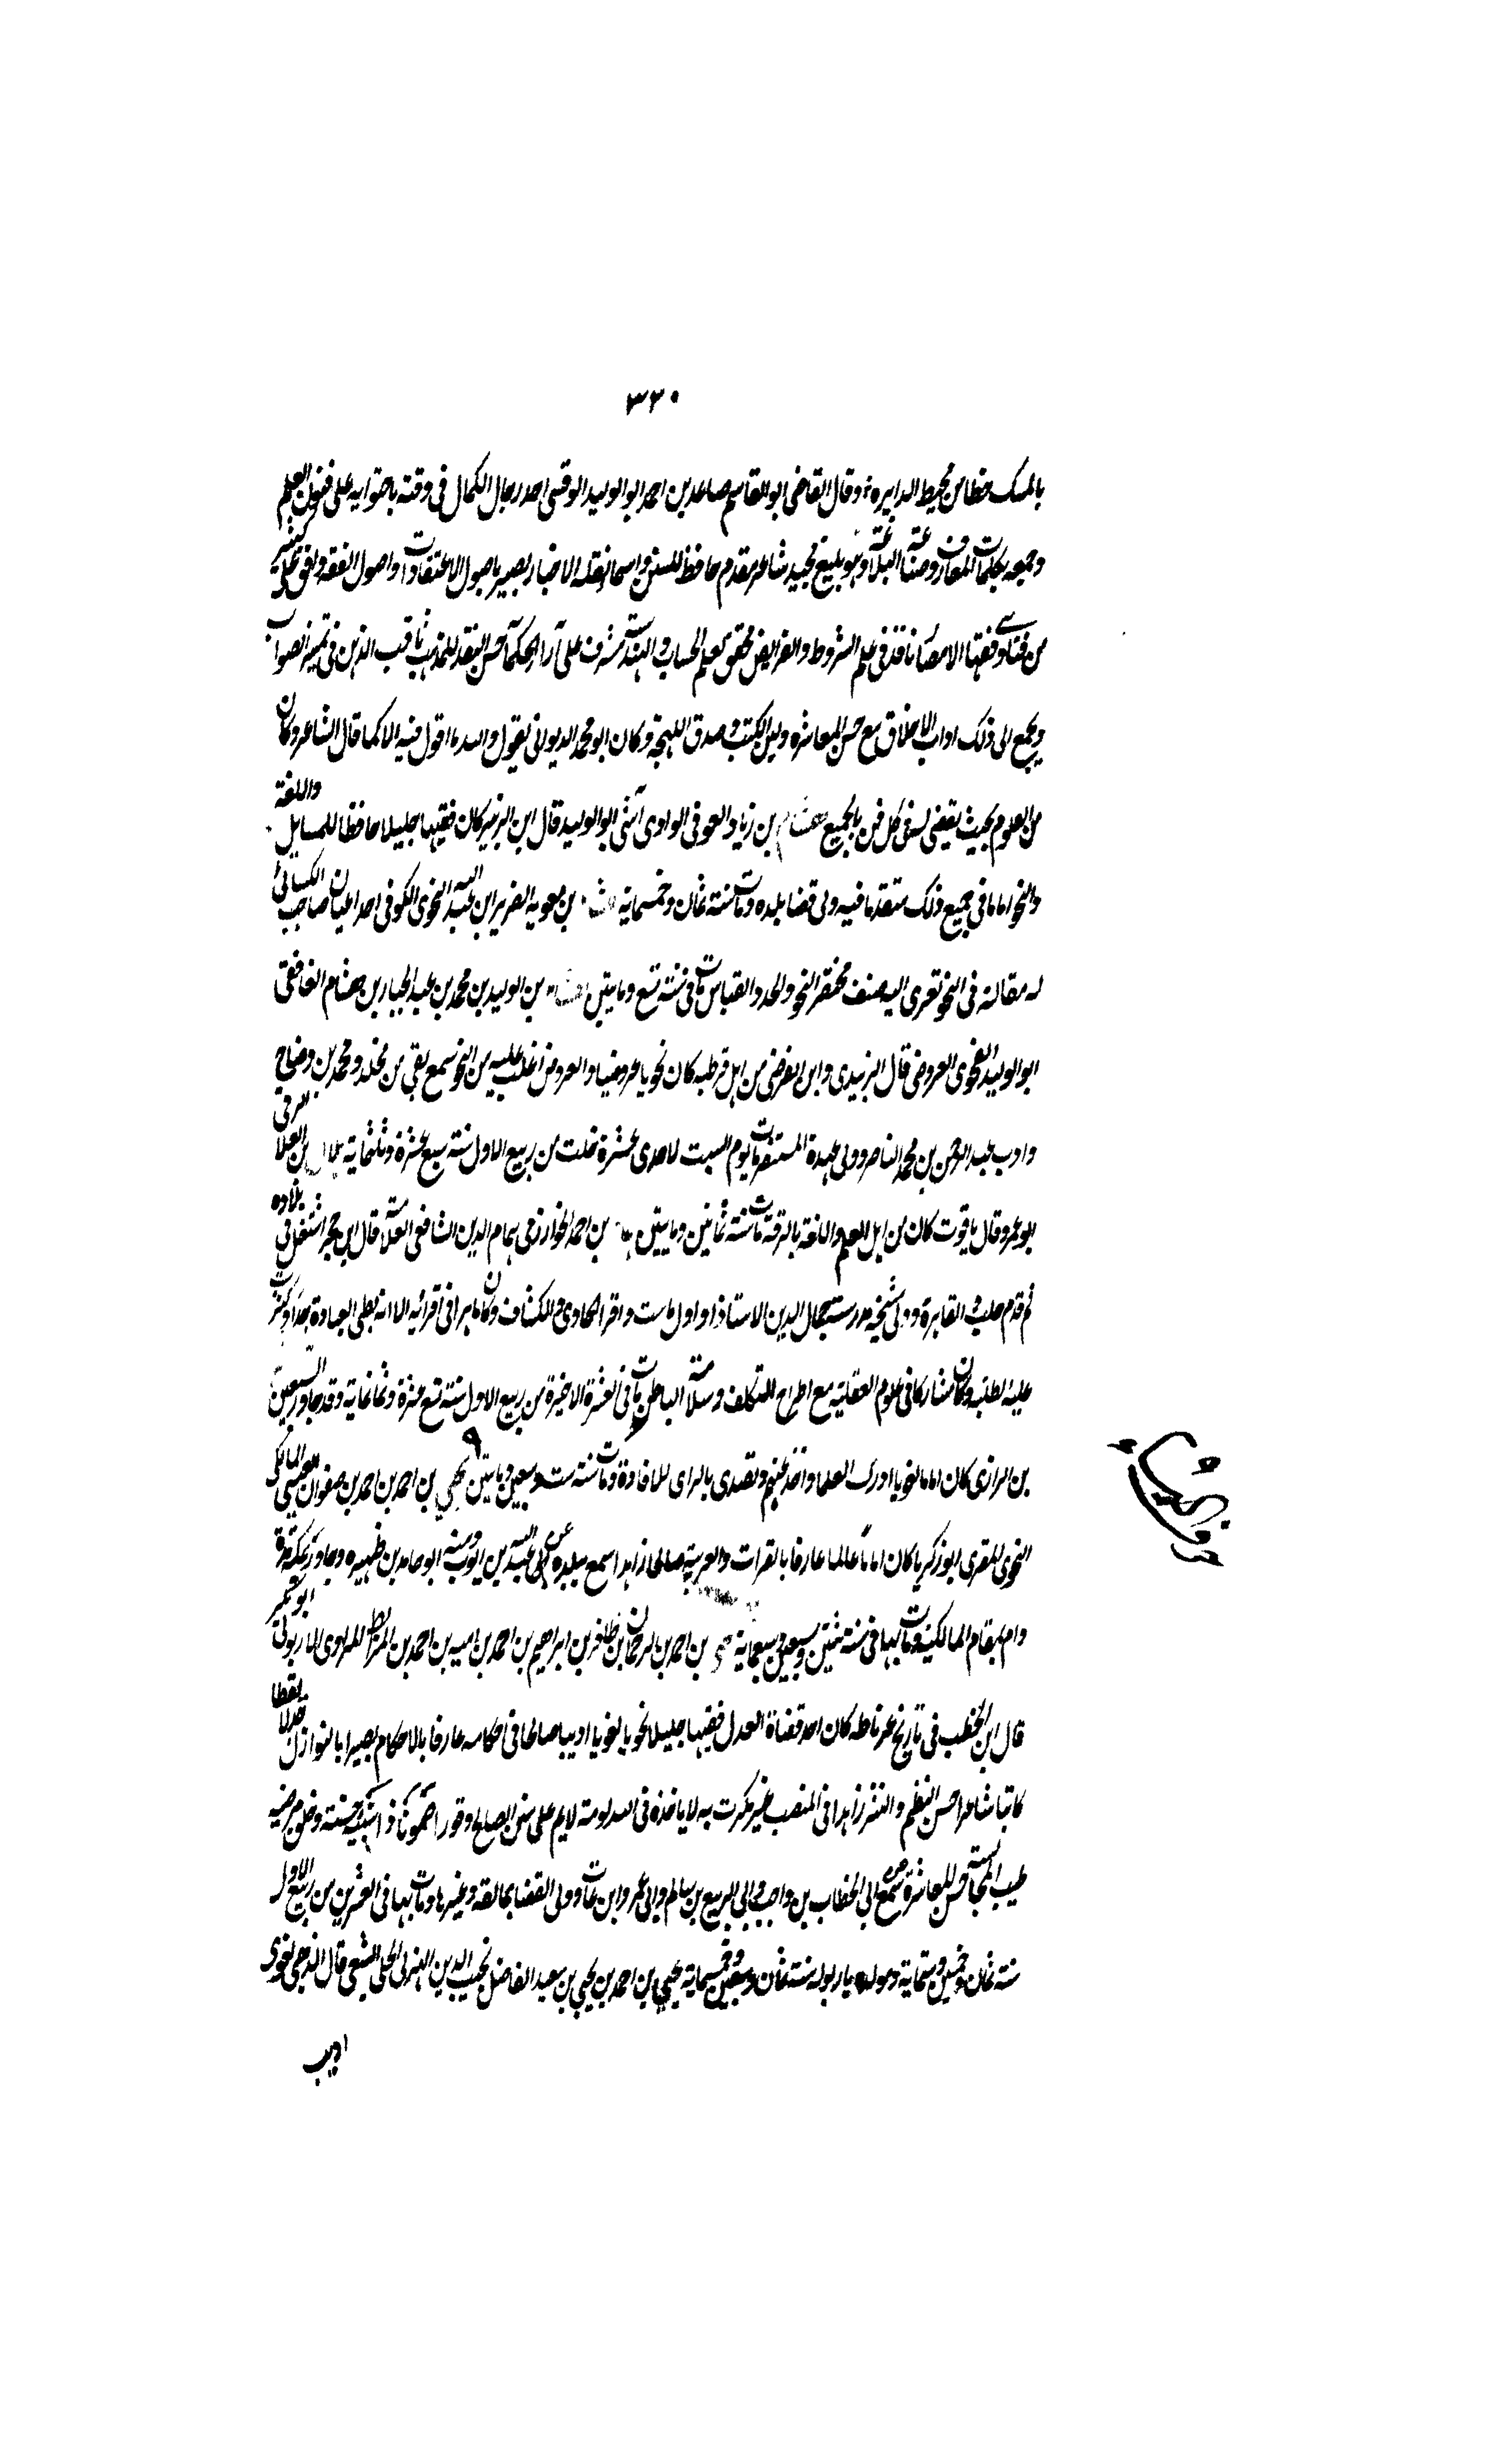 ٣٣٠
بالمسك خطا من محيط الدايره وقال القاضى ابو القاسم صاعد بن احمد ابو الوليد الوقشى احد رجال الكمال فى وقته باحتوايه على فنون العلم
وجمعه بكليات المعارف وصناعة البلاغة وهو بليغ مجيد شاعر مقدم حافظ للسنن واسما نقلة الاخبار بصير باصول الاعتقادات واصول الفقه واقف على كثير
من فتاوى فقها الامصار نافذ فى علم الشروط والفرايض محقق لعلم الحساب والهندسة مشرف على آرا الحكمآ حسن النقد للمذاهب ثاقب الذهن فى تمييز الصواب
ويجمع الى ذلك اداب الاخلاق مع حسن المعاشره ولين الكنف وصدق اللهجة وكان ابو محمد الديوانى يقول والله ما اقول فيه الا كما قال الشاعر وكان
من العلوم بحيث يقضى له فى كل فن بالجميع هشام بن زياد العوفى الوادى آشى ابو الوليد قال ابن الزبير كان فقيها جليلا حافظا للمسايل واللغة
والنحو اماما فى جميع ذلك متقدما فيه ولى قضا بلده ومات سنة ثمان وخمسماية هشام بن معوية الضرير ابو عبد الله النحوى الكوفى احد اعيان صاحب الكسائى
له مقالة فى النحو تعزى اليه صنف مختصر النحو والحدود القياس مات فى سنة تسع ومايتين هشام بن الوليد بن محمد بن عبد الجبار بن هشام الغافقى
ابو الوليد النحوى العروضى قال الزبيدى وابن الفرضى من اهل قرطبه كان نحويا عروضيا والعروض اغلب عليه من النحو سمع بقى بن مخلد ومحمد بن وضاح
وادب عبد الرحمن بن محمد الناصر وولى عهده المستنصر مات يوم السبت لاحدى عشرة خلت من ربيع الاول سنة سبع عشرة وثلثماية هلال بن العلا الرقى
ابو عمرو قال ياقوت كان من اهل العلم واللغة بالرقة مات سنة ثمانين ومايتين همام بن احمد الخوارزمى همام الدين الشافعى العلامة قال ابن حجر اشتغل فى بلاده
ثم قدم حلب والقاهرة وولى مشيخة مدرسة جمال الدين الاستاذ اول ما بنيت واقرا الحاوى والكشاف وكان ماهرا فى اقرائه الا انه بطى العبادة جدا وكثرت
عليه الطلبة وكان مشاركا فى علوم العقلية مع اطراح للتكلف وسلامة الباطن مات فى العشرة الاخيرة من ربيع الاول سنة تسع عشرة وثمانماية وقد جاوز السبعين
بن الرازى كان اماما لغويا ادرك العلما واخذ عنهم وتصدى بالراى للافادة ومات سنة ست وسبعين ومايتين يحيى بن احمد بن احمد بن صفوان القيسى المالكى
النحوى المقرى ابو زكريا كان اماما عالما عارفا بالقرات والعربية صالحا زاهدا سمع ببلده عن ابى عبد الله بن ايوب ومنه ابو حامد بن ظهيره وجاور بمكة مدة
وام بمقام المالكية ومات بها فى سنة ثنتين وسبعين وسبعماية يحيى بن احمد بن عبد الرحمان بن ظافر بن ابراهيم بن احمد بن اميه بن احمد بن المرابط المرادى الاربولى ابو بكر
قال ابن الخطيب فى تاريخ غرناطه كان احد قضاة العدل فقيها جليلا نحويا لغويا اديبا صالحا فى حكامه عارفا بالاحكام بصيرا بالنوازل عدلا يقظا
كاتبا شاعرا حسن النظم والنثر زاهدا فى المنصب غير مكترث به لا ياخذه فى الله لومة لايم على سنن الصلح وقورا صموتا ذا شيبة حسنة وخلق مرضيه
طيب المجالسة حسن المعاشرة سمع من ابى الخطاب بن واجب وابى الربيع بن سالم وابى عمرو ابن عات وولى القضا بمالقة وغيرها ومات بها فى العشرين من ربيع الاول
سنة ثمان وخمسين وستماية ومولده باربوله سنة ثمان وسبعين وخمسماية يحيى بن احمد بن يحيى بن سعيد الفاضل نجيب الدين الهذلى الحلى الشيعى قال الذهبى لغوى
اديب